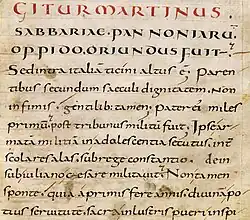 GITUR MARTINUS.
SABBARIAE·PANNONIARŪ
OPPIDO. ORIUNDUS FUIT;
Sed intra italiā ticini altus ē; Paren
tibus secundum saeculi dignitatem. Non
infimis. gentilib; tamen; Pater ei miles
primū. post tribunus militū fuit; Ipse ar
mata militiā in adolescentia secutus. int
scolares alas. sub rege constantio. dein
sub iuliano cesare militavit; Non tamen
sponte. quia a primis fere annis. divinā po
tius servitute. sacra inlustris puer inspi